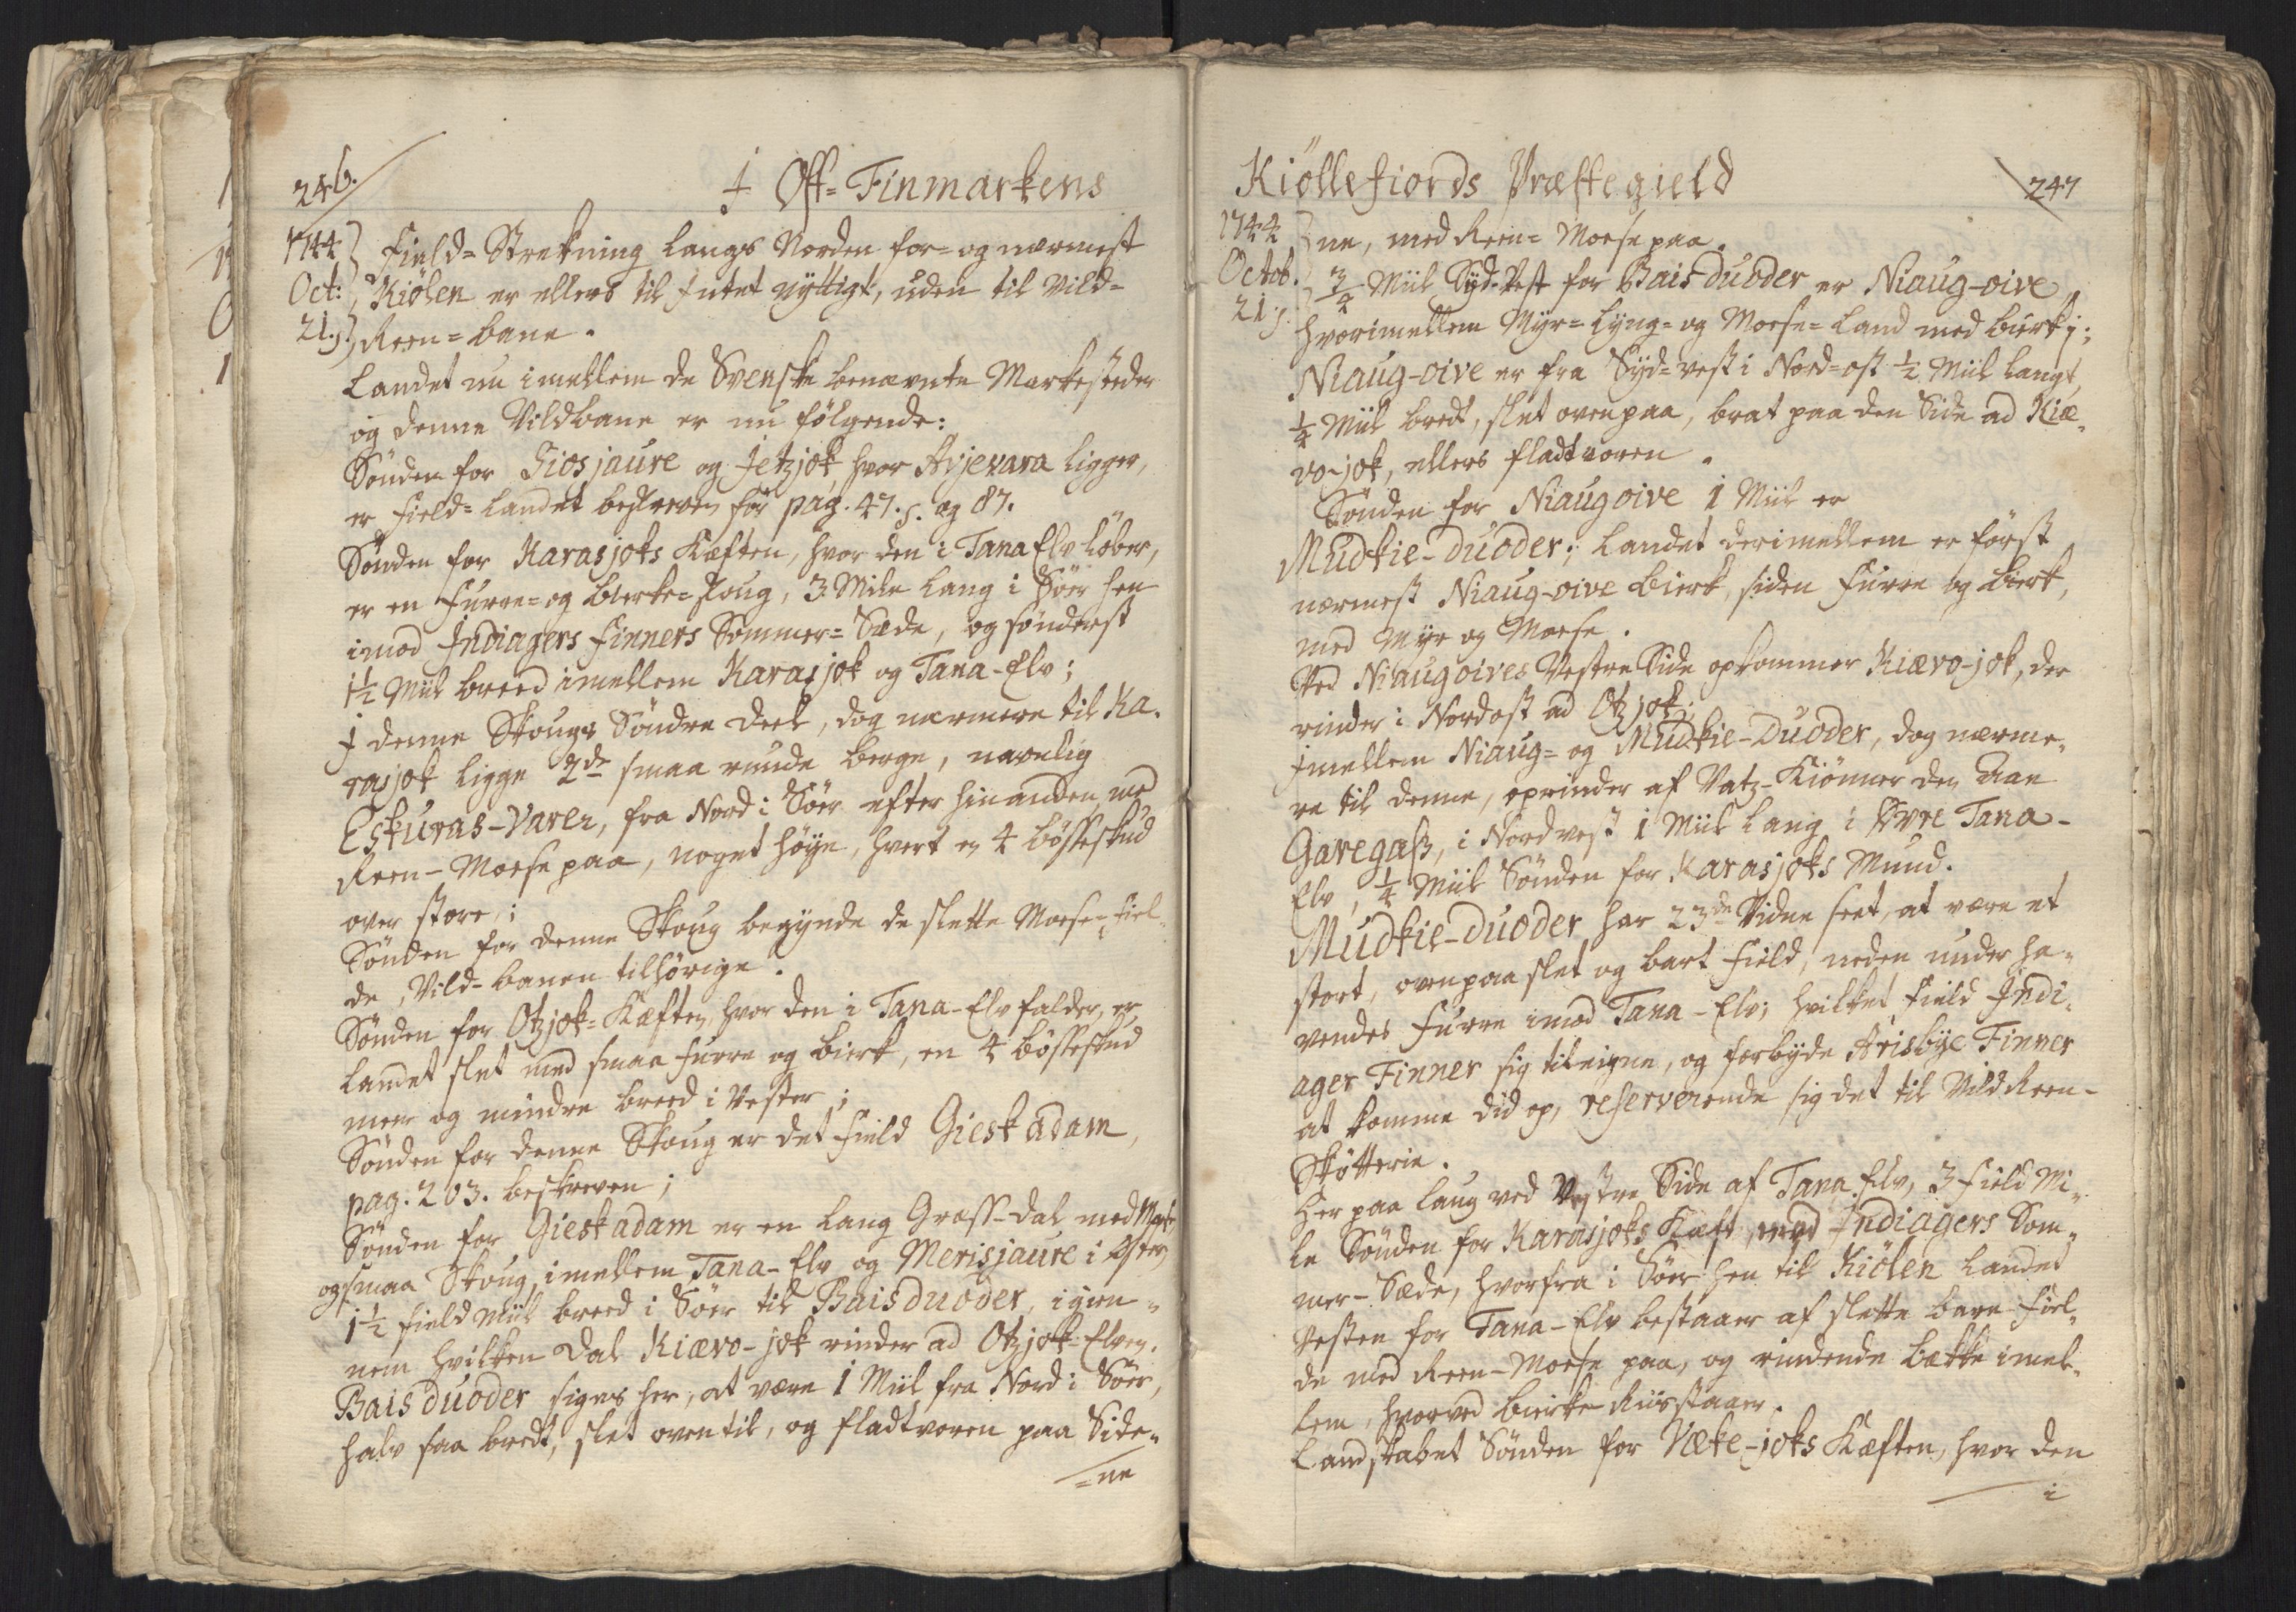 246.
I Ost-Finmarkens
1744
Oct:
21.
Field-Strekning langs Norden for- og nærmest
Kiölen er ellers til intet nyttigt, uden til Vild-
Reen-bane.
Landet nu imellem de Svenske benævnte Markesteder
og denne Vildbane er nu fölgende:
Sönden for Giosjaure og Jetzjok, hvor Avjevara ligger,
er Field-Landet beskreven för pag. 47. s. og 87.
Sönden for Karasjoks Kæften, hvor den i Tana Elv löber,
er en Furre- og Birke-Skoug, 3 Mile lang i Söer hen
imod Indiagers Finners Sommer-Sæde, og sönderst
1½ Miil breed imellem Karasjok og Tana-Elv;
I denne Skougs Söndre Deel, dog nærmere til Ka-
rasjok ligge 2de smaa runde Berge, navnlig
Eskuras-Varer, fra Nord i Söer efter hinanden med
Reen-Moese paa, noget höye, hvert en 4 bösseskud
over store;
Sönden for denne Skoug begynde de slette Moese-Fiel-
de, Vild-banen tilhörige.
Sönden for Otzjok-Kæften, hvor den i Tana-Elv falder, er
Landet slet med smaa Furre og Birk, en 4 bösseskud
meer og mindre breed i Vester;
Sönden for denne Skoug er det Field Gieskadam,
pag. 203. beskreven;
Sönden for Gieskadam er en lang Græss-Dal med Myr
og smaa Skoug, imellem Tana-Elv og Merisjaure i Öster,
1½ Field Miil breed i Söer til Baisduoder, igien-
nem hvilken Dal Kiævo-jok rinder ad Otzjok-Elven.
Baisduoder siges her, at være 1 Miil fra Nord i Söer,
halv saa bredt, slet oventil, og fladtvoren paa Side-
-ne
Kiöllefiords Præstegield
247
1744
Octob.
21.
ne, med Reen-Moese paa.
¾ Miil Syd-Vest for Baisduoder er Niaug-oive,
hvorimellem Myr-Lyng- og Moese-Land med Birk i;
Niaug-oive er fra Syd-vest i Nord-ost ½ Miil langt,
¼ Miil bredt, slet ovenpaa, brat paa den Side ad Kiæ-
vo-jok, ellers fladtvoren.
Sönden for Niaugoive 1 Miil er
Mudkie-duoder; Landet derimellem er först
nærmest Niaug-oive Birk, siden Furre og Birk,
med Myr og Moese.
Ved Niaugoives Vestre Side opkommer Kiævo-jok, der
rinder i Nordost ad Otzjok;
Imellem Niaug- og Mudkie-Duoder, dog nærme-
re til denne, oprinder af Vatz-Kiönner den Aae
Garegass, i Nordvest 1 Miil lang i Övre Tana-
Elv, ¼ Miil Sönden for Karasjoks Mund.
Mudkie-Duoder har 23de Vidne seet, at være et
stort, ovenpaa slet og bart Field, neden under ha-
vendes Furre imod Tana-Elv; hvilket Field Indi-
ager Finner sig tileigne, og forbyde Arisbye Finner
at komme did op, reserverende sig det til Vild Reen-
Skötterie.
Her paa laug ved Vestre Side af Tana Elv, 3 Field Mi-
le Sönden for Karasjoks Kæft, Indiagers Som-
mer-Sæde, hvorfra i Söer hen til Kiölen Landet
Vesten for Tana-Elv bestaaer af slette bare Fiel-
de med Reen-Moese paa, og rindende Bække imel-
lem, hvorved Birke Riis staaer.
Landskabet Sönden for Væke-joks Kæften, hvor den
i